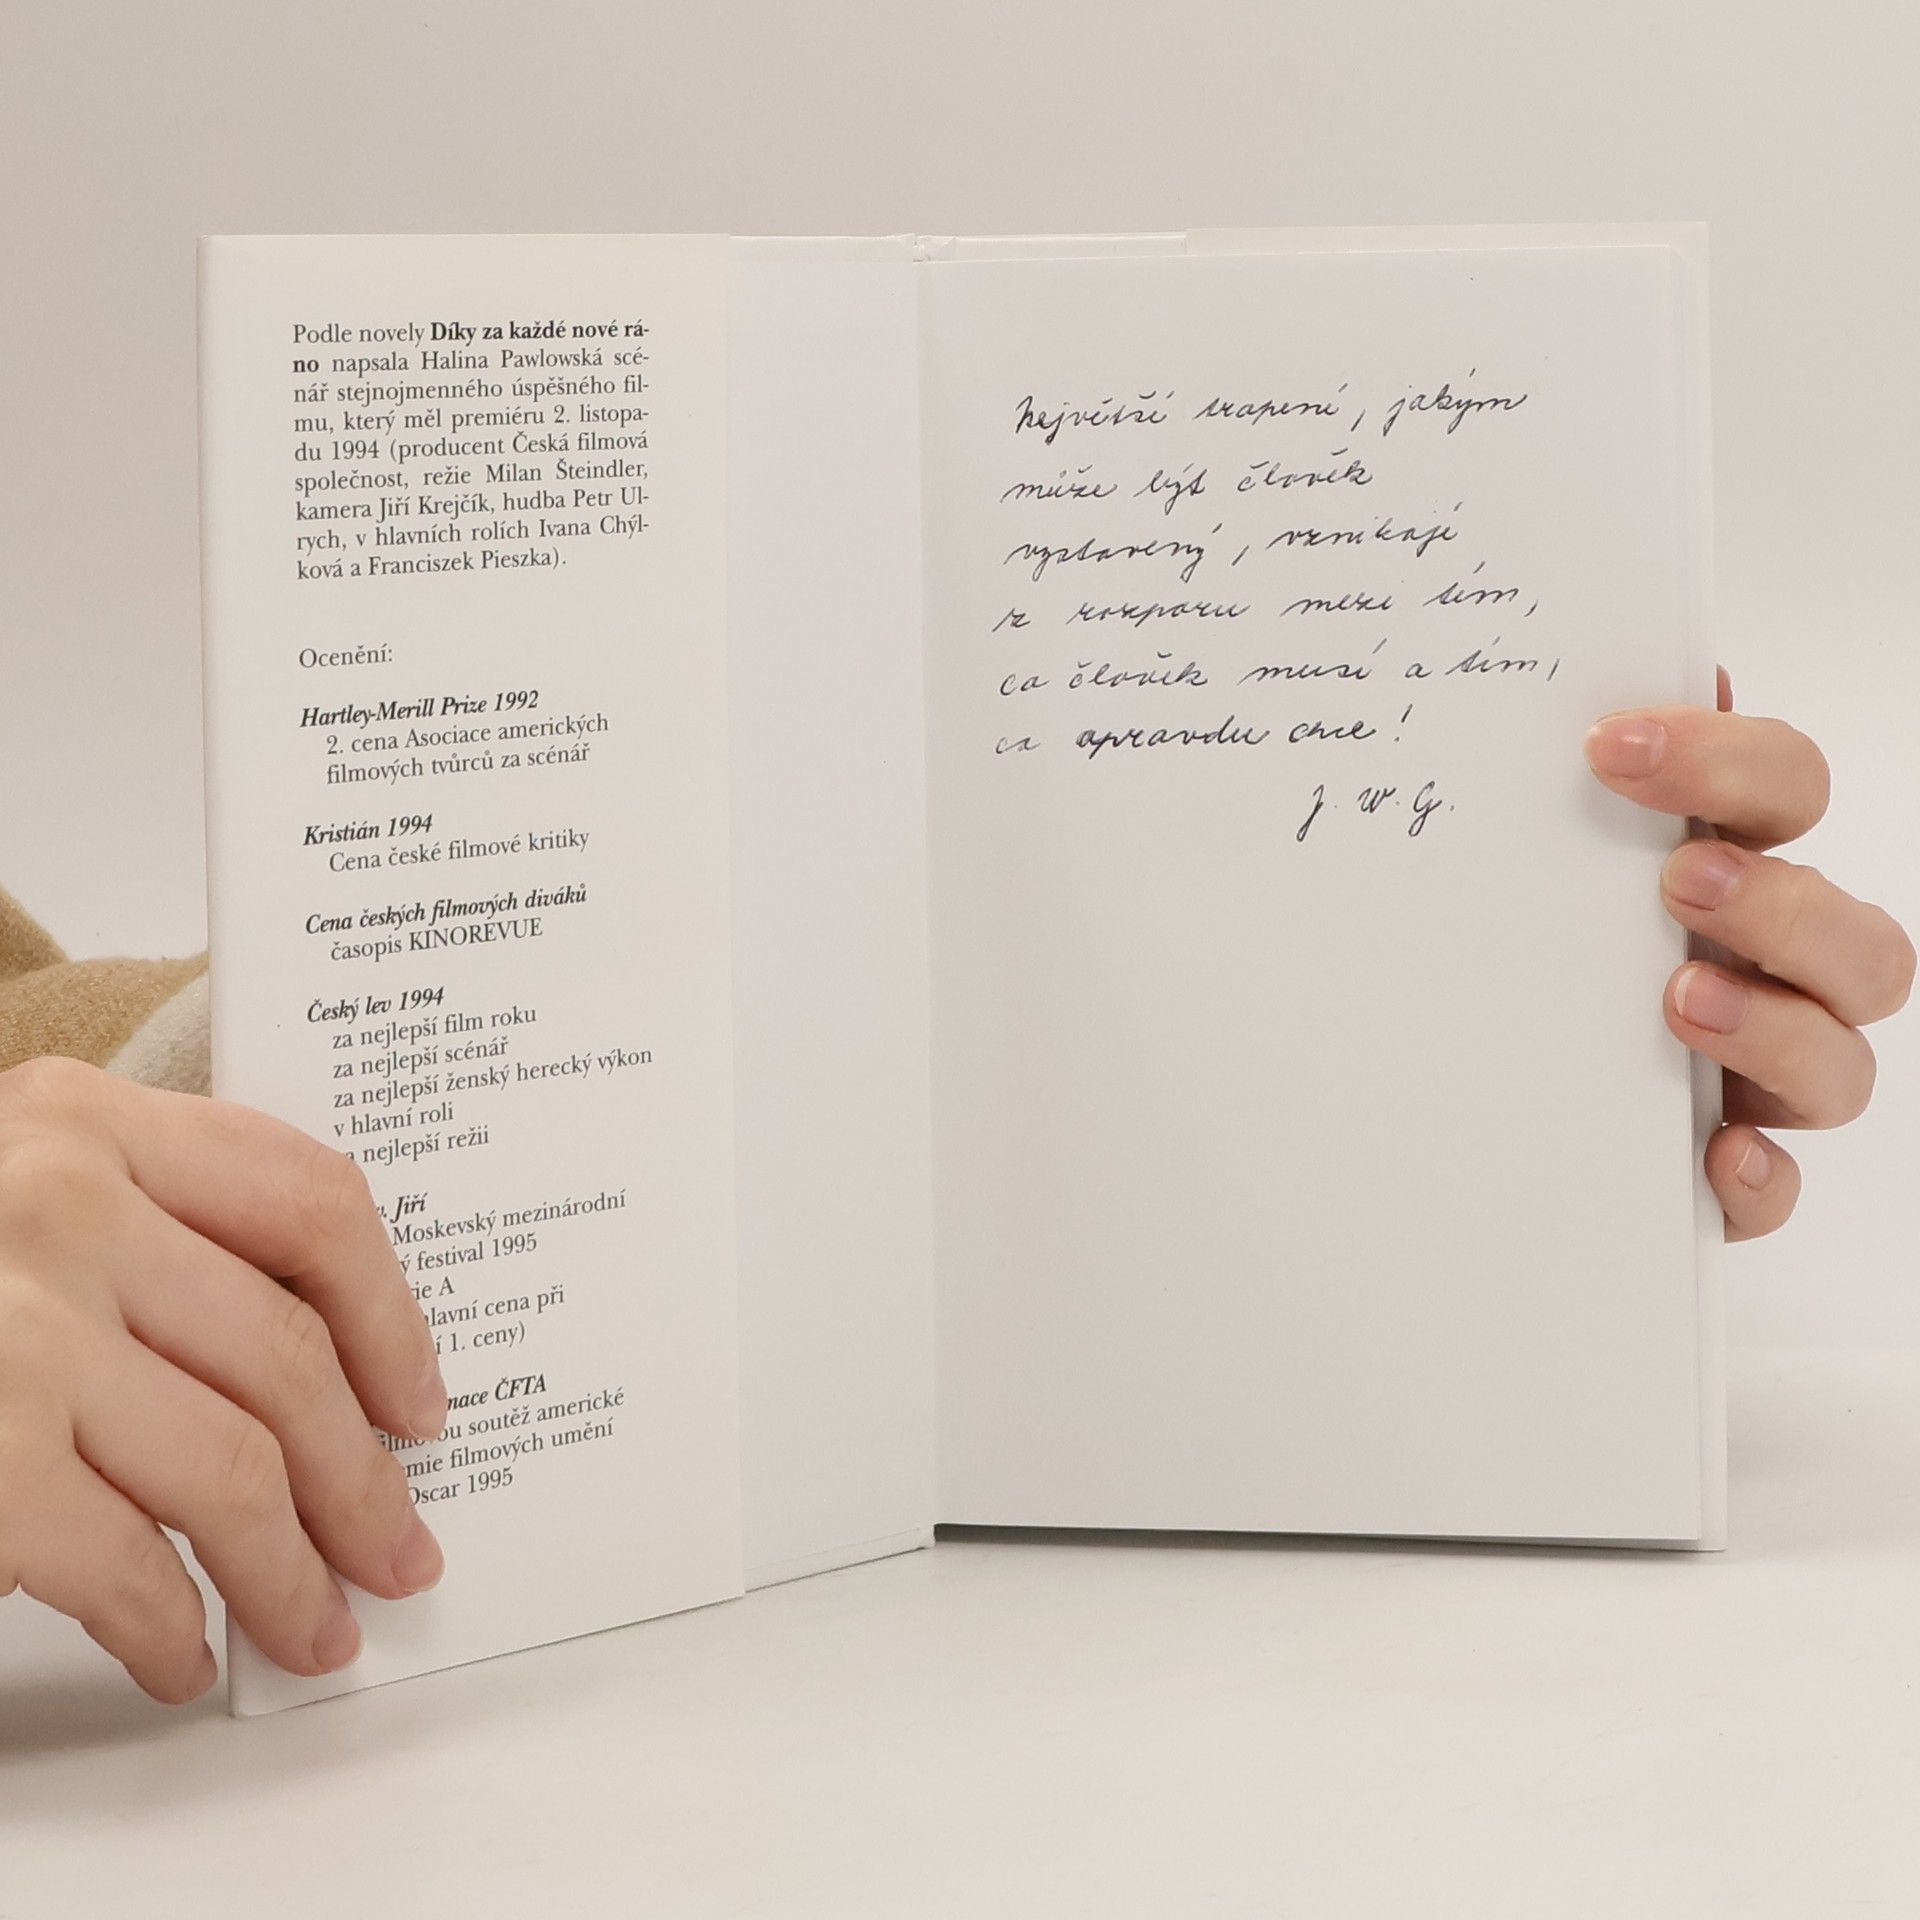 Podle novely Díky za každé nové rá-
no napsala Halina Pawlowská scé-
nář stejnojmenného úspěšného fil-
mu, který měl premiéru 2. listopa-
du 1994 (producent Česká filmová
společnost, režie Milan Šteindler,
kamera Jiří Krejčík, hudba Petr Ul-
rych, v hlavních rolích Ivana Chýl-
ková a Franciszek Pieszka).
Ocenění:
Hartley-Merill Prize 1992
2. cena Asociace amerických
filmových tvůrců za scénář
Kristián 1994
Cena české filmové kritiky
Cena českých filmových diváků
časopis KINOREVUE
Český lev 1994
za nejlepší film roku
za nejlepší scénář
za nejlepší ženský herecký výkon
v hlavní roli
nejlepší režii
Jiří
Moskevský mezinárodní
festival 1995
A
cena při
1. ceny)
ČFTA
soutěž americké
filmových umění
Oscar 1995
Největší trápení, jakým
může být člověk
vystavený, vznikají
z rozporu mezi tím,
co člověk musí a tím,
co opravdu chce!
J. W. G.